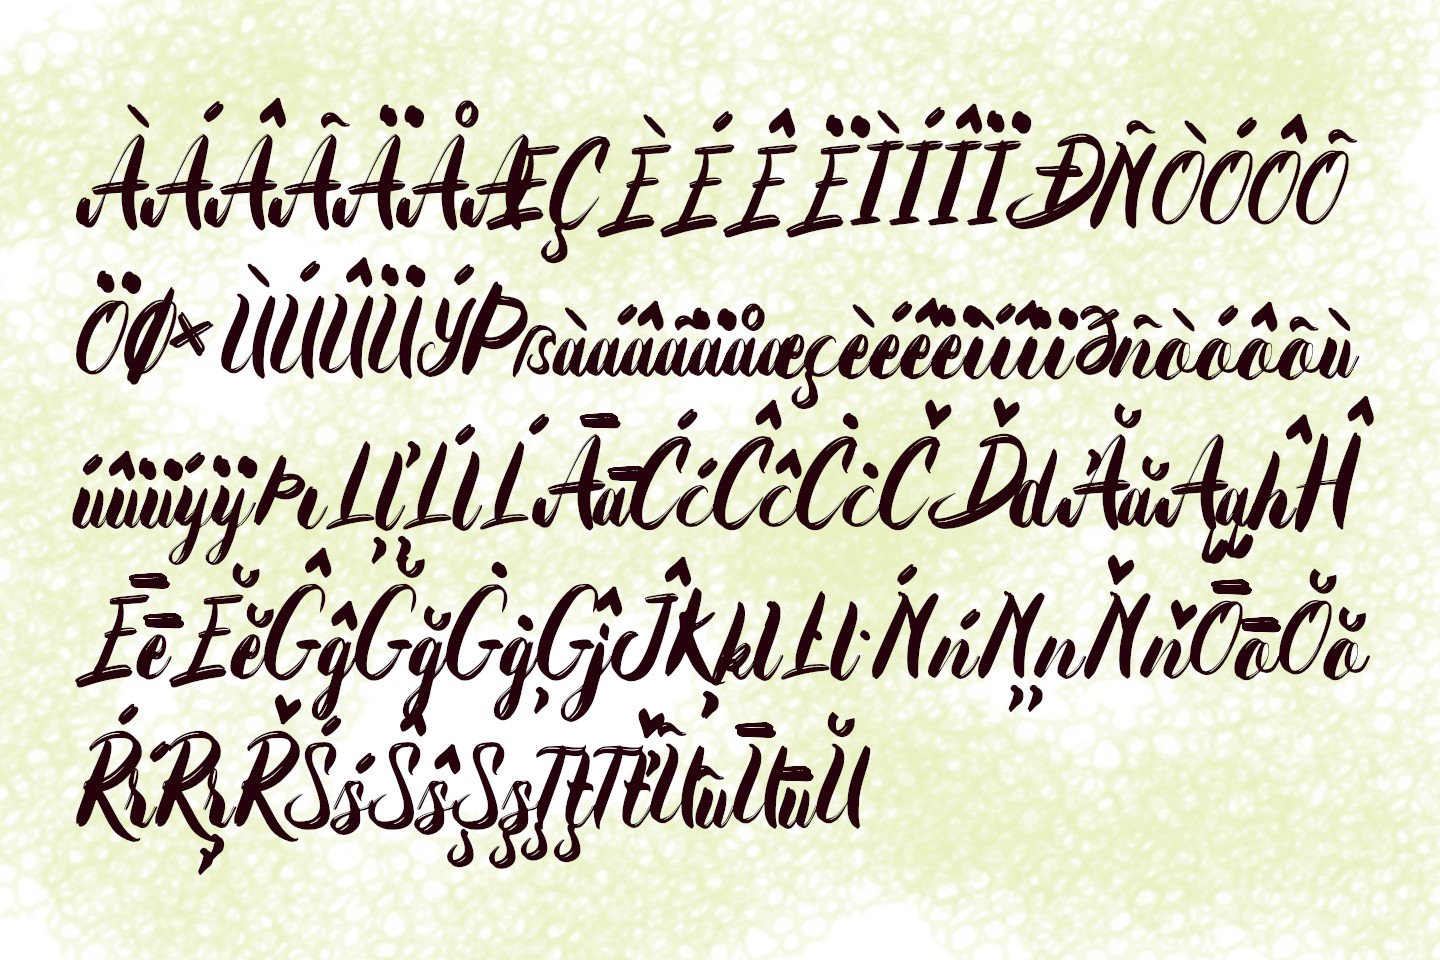 ÀÁÂÃÄÅÆÇÈÉÊËÌÍÎÏÐÑÒÓÔÕ
ÖØ×ÙÚÛÜÝÞßàáâãäåæçèéêëìíîïðñòóôõù
úûüýÿþıĹľĽĺĹĀāĆćĈĉĊċČĎďĂăĄąĥĤ
ĒēĔĕĜĝĞğĠġĢĵĴĶķĿŀŃńŅņŇňŌōŎŏ
ŔŕŖŗŘŚśŜŝŞşŢţŤťŨũŪūŬ